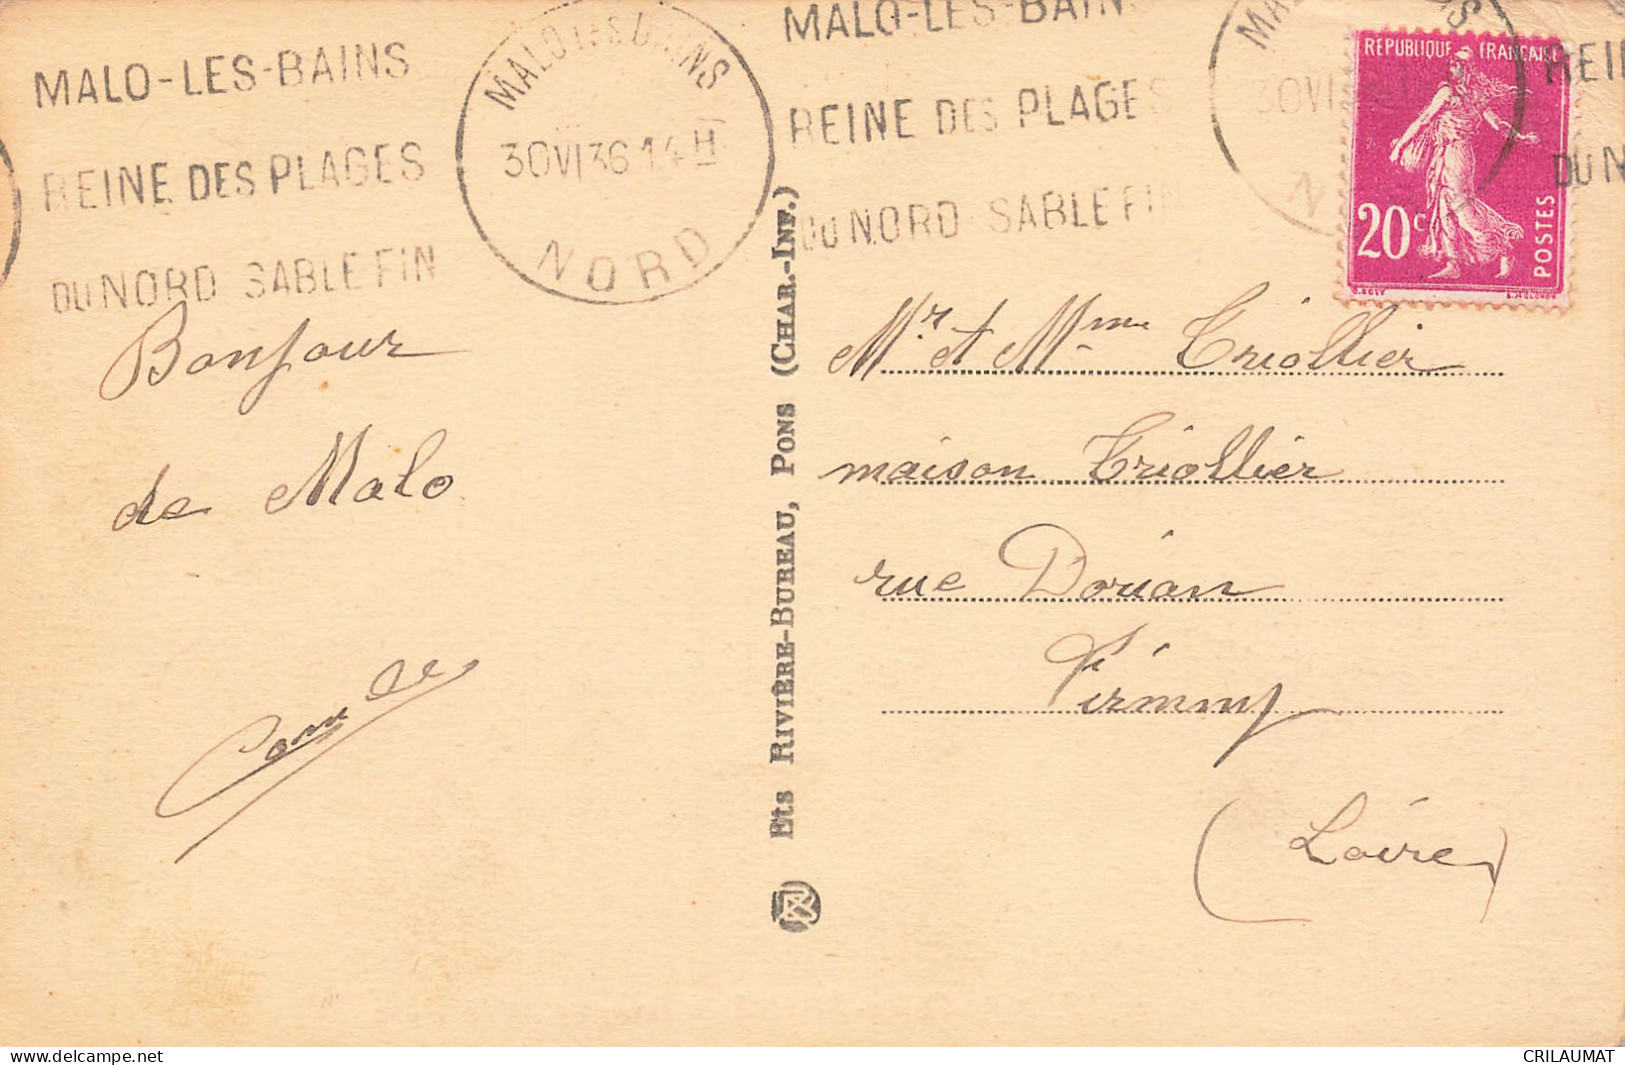 MALO-LES-BAINS
REINE DES PLAGES
DU NORD SABLE FIN
MALO LES BAINS
30 VI 36 14 H
NORD
MALO-LES-BAIN
REINE DES PLAGES
DU NORD SABLE FI
30 VI
REPUBLIQUE FRANÇAISE
20c
POSTES
REI
DU N
Bonjour
de Malo
Mr et Mme Triollier
maison Triollier
rue Dorian
Firminy
(Loire)
Ets RIVIÈRE-BUREAU, PONS (CHAR.-INF.)
delcampe.net
CRILAUMAT